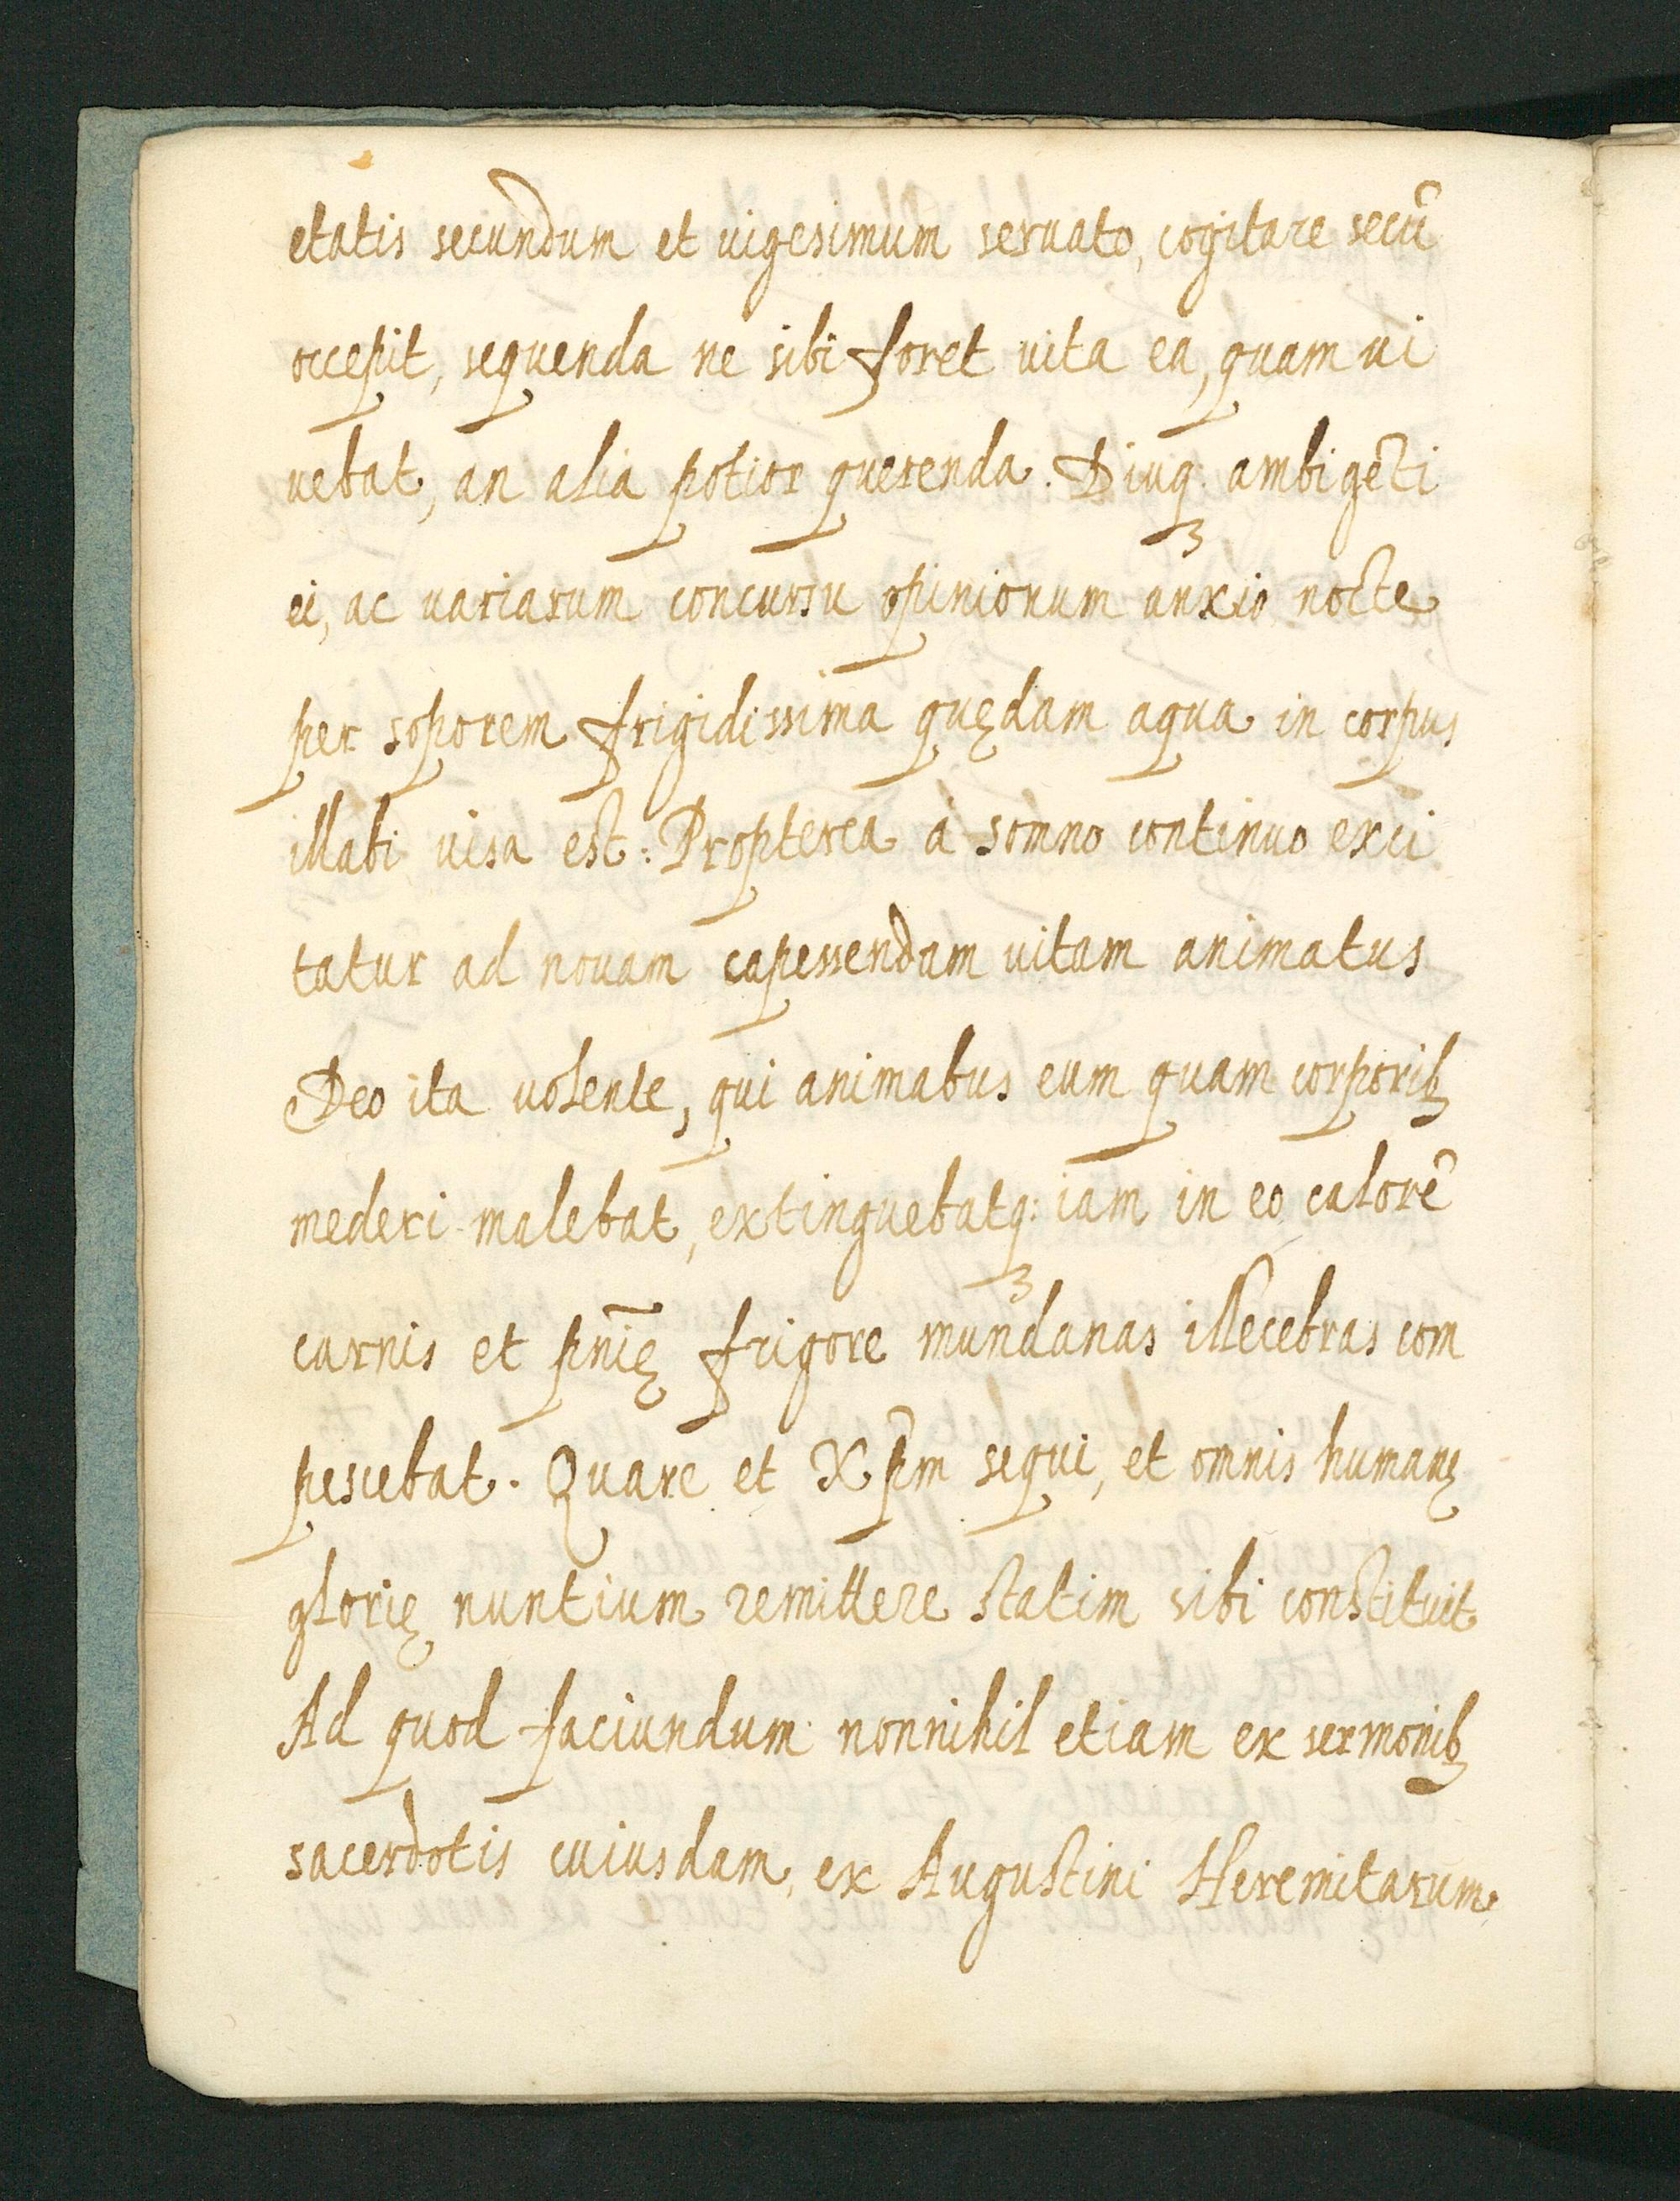 etatis secundum et uigesimum seruato, cogitare secũ
occepit, sequenda ne sibi foret uita ea, quam ui
uebat, an alia potior querenda. Diuq. ambigẽti
ei, ac uariarum concursu opinionum anxio nocte
per soporem frigidissima quędam aqua in corpus
illabi uisa est: Propterea à somno continuo exci
tatur ad nouam capessendam uitam animatus
Deo ita uolente, qui animabus eum quam corporibꝫ
mederi malebat, extinguebatqꝫ iam in eo calorẽ
carnis et pn̄ię frigore mundanas illecebras com
pescebat. Quare et Xp̃m sequi, et omnis humanę
glorię nuntium remittere statim sibi constituit
Ad quod faciundum nonnihil etiam ex sermonibꝫ
sacerdotis cuiusdam, ex Augustini Heremitarum